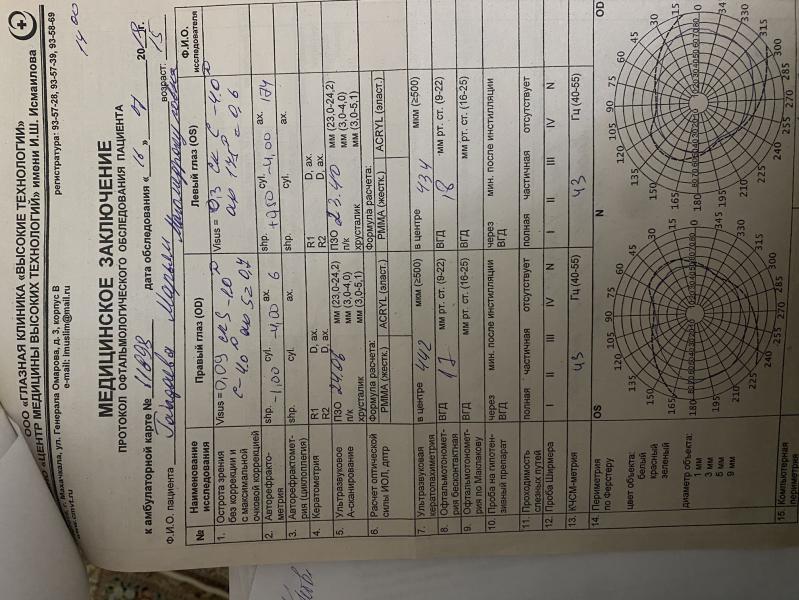 ООО «ГЛАЗНАЯ КЛИНИКА «ВЫСОКИЕ ТЕХНОЛОГИИ»
«ЦЕНТР МЕДИЦИНЫ ВЫСОКИХ ТЕХНОЛОГИЙ» имени И.Ш. Исмаилова
г. Махачкала, ул. Генерала Омарова, д. 3, корпус В
регистратура: 93-57-28, 93-57-39, 93-58-69
e-mail: imuslim@mail.ru
14 00
МЕДИЦИНСКОЕ ЗАКЛЮЧЕНИЕ
ПРОТОКОЛ ОФТАЛЬМОЛОГИЧЕСКОГО ОБСЛЕДОВАНИЯ ПАЦИЕНТА
к амбулаторной карте № дата обследования « 16 » 20 г.
Ф.И.О. пациента возраст: 15
№ Наименование исследования Правый глаз (OD) Левый глаз (OS) Ф.И.О. исследователя
1. Острота зрения без коррекции и с максимальной очковой коррекцией Visus = 0,09 Visus = 0,3
2. Авторефрактометрия shp. -1,00 cyl. -4,00 ax. 6 shp. +0,50 cyl. -4,00 ax. 174
3. Авторефрактометрия (циклоплегия) shp. cyl. ax. shp. cyl. ax.
4. Кератометрия R1 D, ax. R1 D, ax.
R2 D, ax. R2 D, ax.
5. Ультразвуковое А-сканирование ПЗО 24.06 мм (23,0-24,2) ПЗО 23.40 мм (23,0-24,2)
п/к мм (3,0-4,0) п/к мм (3,0-4,0)
хрусталик (3,0-5,1) хрусталик (3,0-5,1)
6. Расчет оптической силы ИОЛ, дптр Формула расчета: Формула расчета:
РММА (жестк.) ACRYL (эласт.) РММА (жестк.) ACRYL (эласт.)
7. Ультразвуковая кератопахиметрия в центре 442 мкм (≥500) в центре 434 мкм (≥500)
8. Офтальмотонометрия бесконтактная ВГД 17 мм рт. ст. (9-22) ВГД 18 мм рт. ст. (9-22)
9. Офтальмотонометрия по Маклакову ВГД мм рт. ст. (16-25) ВГД мм рт. ст. (16-25)
10. Проба на гипотензивный препарат через мин. после инстилляции ВГД через мин. после инстилляции ВГД
11. Проходимость слезных путей полная частичная отсутствует полная частичная отсутствует
12. Проба Ширмера I II III IV N I II III IV N
13. КЧСМ-метрия 43 Гц (40-55) 43 Гц (40-55)
14. Периметрия по Ферстеру
цвет объекта:
белый
красный
зеленый
диаметр объекта:
1 мм
3 мм
5 мм
9 мм
OS N OD
15. Компьютерная периметрия